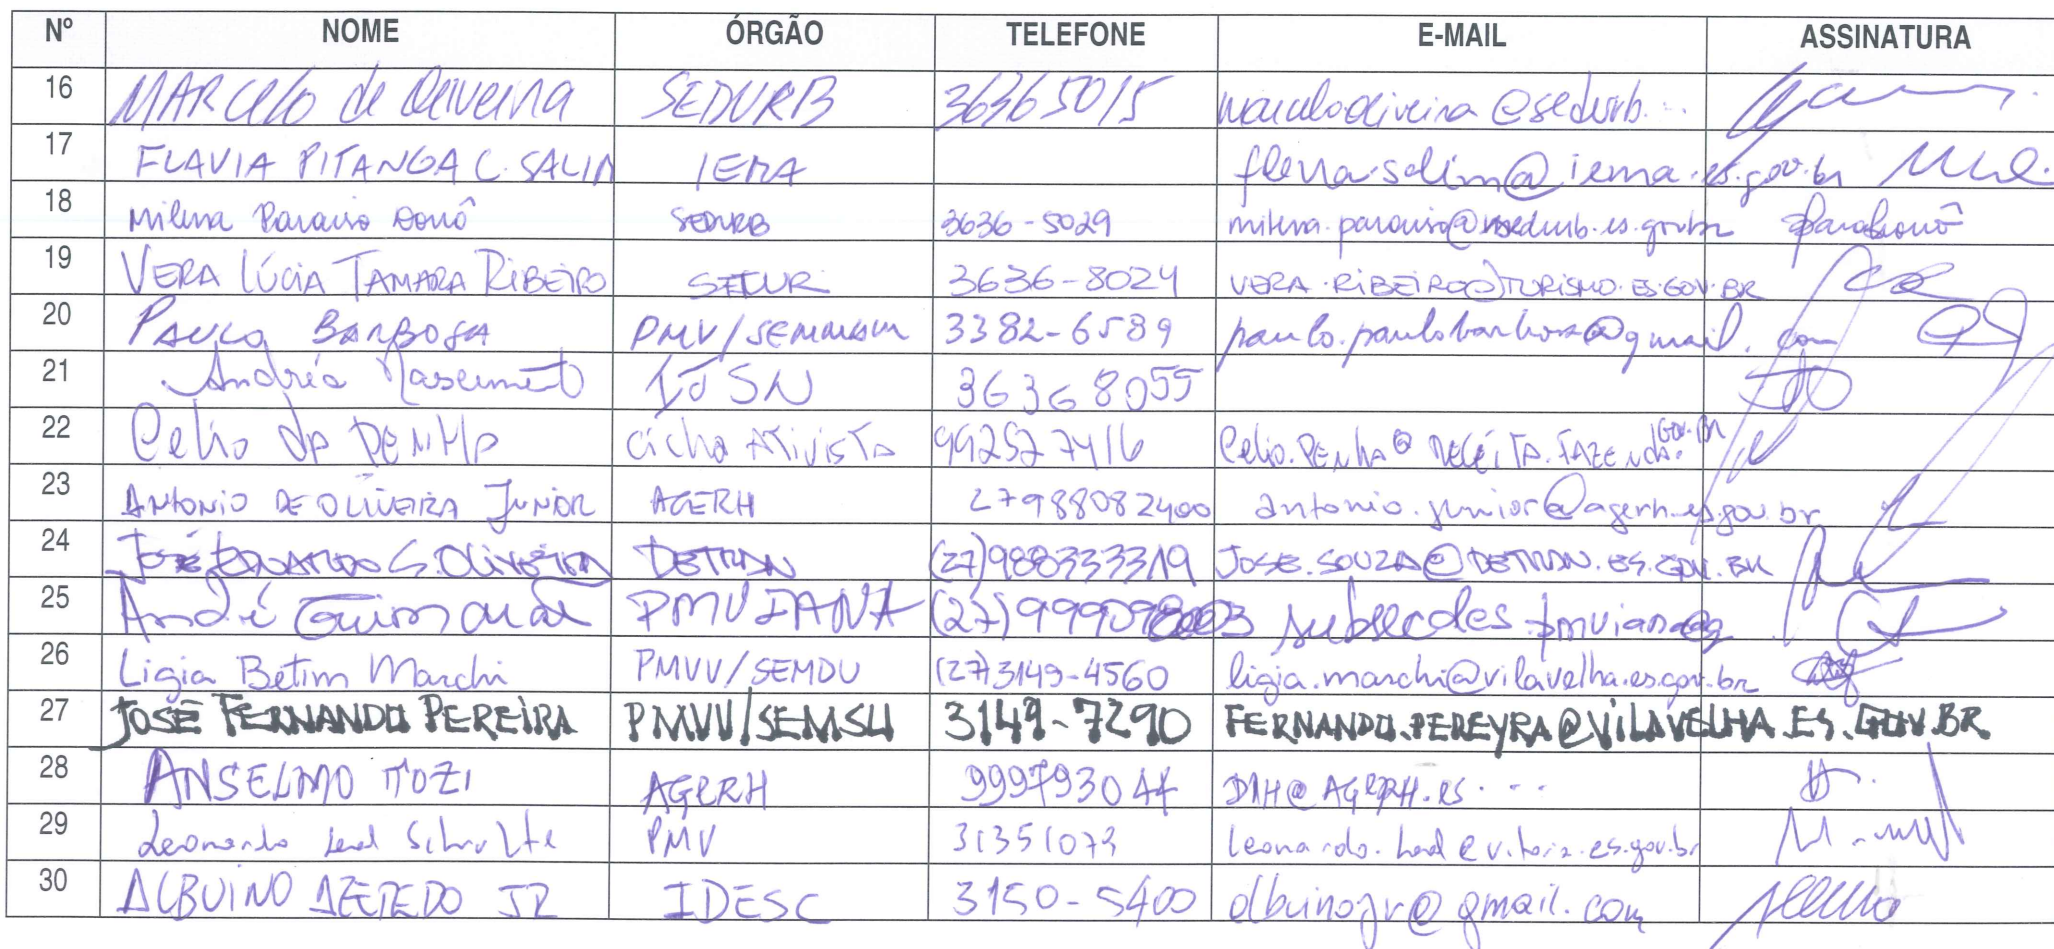 Nº NOME ÓRGÃO TELEFONE E-MAIL ASSINATURA
16 MARCelo de Oliveira SEDURB 36365015 marcelooliveira@sedurb...
17 FLAVIA PITANGA C. SALIM IEMA flavia.salim@iema.es.gov.br
18 Milena Paraiso Donô SEDURB 3636-5029 milena.paraiso@sedurb.es.gov.br
19 VERA LÚCIA TAMARA RIBEIRO SETUR 3636-8024 VERA.RIBEIRO@TURISMO.ES.GOV.BR
20 PAULO BARBOSA PMV/SEMMAM 3382-6589 paulo.paulobarbosa@gmail.com
21 Andréa Nascimento IJSN 36368055
22 Celio da PENHA Ciclo ATIVISTA 992527416 Celio.PENHA@RECEITA.FAZENDA.GOV.BR
23 ANTONIO DE OLIVEIRA JUNIOR AGERH 27988082400 antonio.junior@agerh.es.gov.br
24 JOSÉ EDUARDO S. OLIVEIRA DETRAN (27)988333319 JOSE.SOUZA@DETRAN.ES.GOV.BR
25 André Guimarães PMVIANA
26 Ligia Betim Marchi PMVV/SEMDU (27)3149-4560 ligia.marchi@vilavelha.es.gov.br
27 JOSÉ FERNANDO PEREIRA PMVV/SEMSU 3149-7290 FERNANDO.PEREYRA@VILAVELHA.ES.GOV.BR
28 ANSELMO TOZI AGERH 999793044 DIH@AGERH.ES...
29 Leonardo PMV 31351073
30 ALBUINO AZEREDO JR IDESC 3150-5400 albuinojr@gmail.com